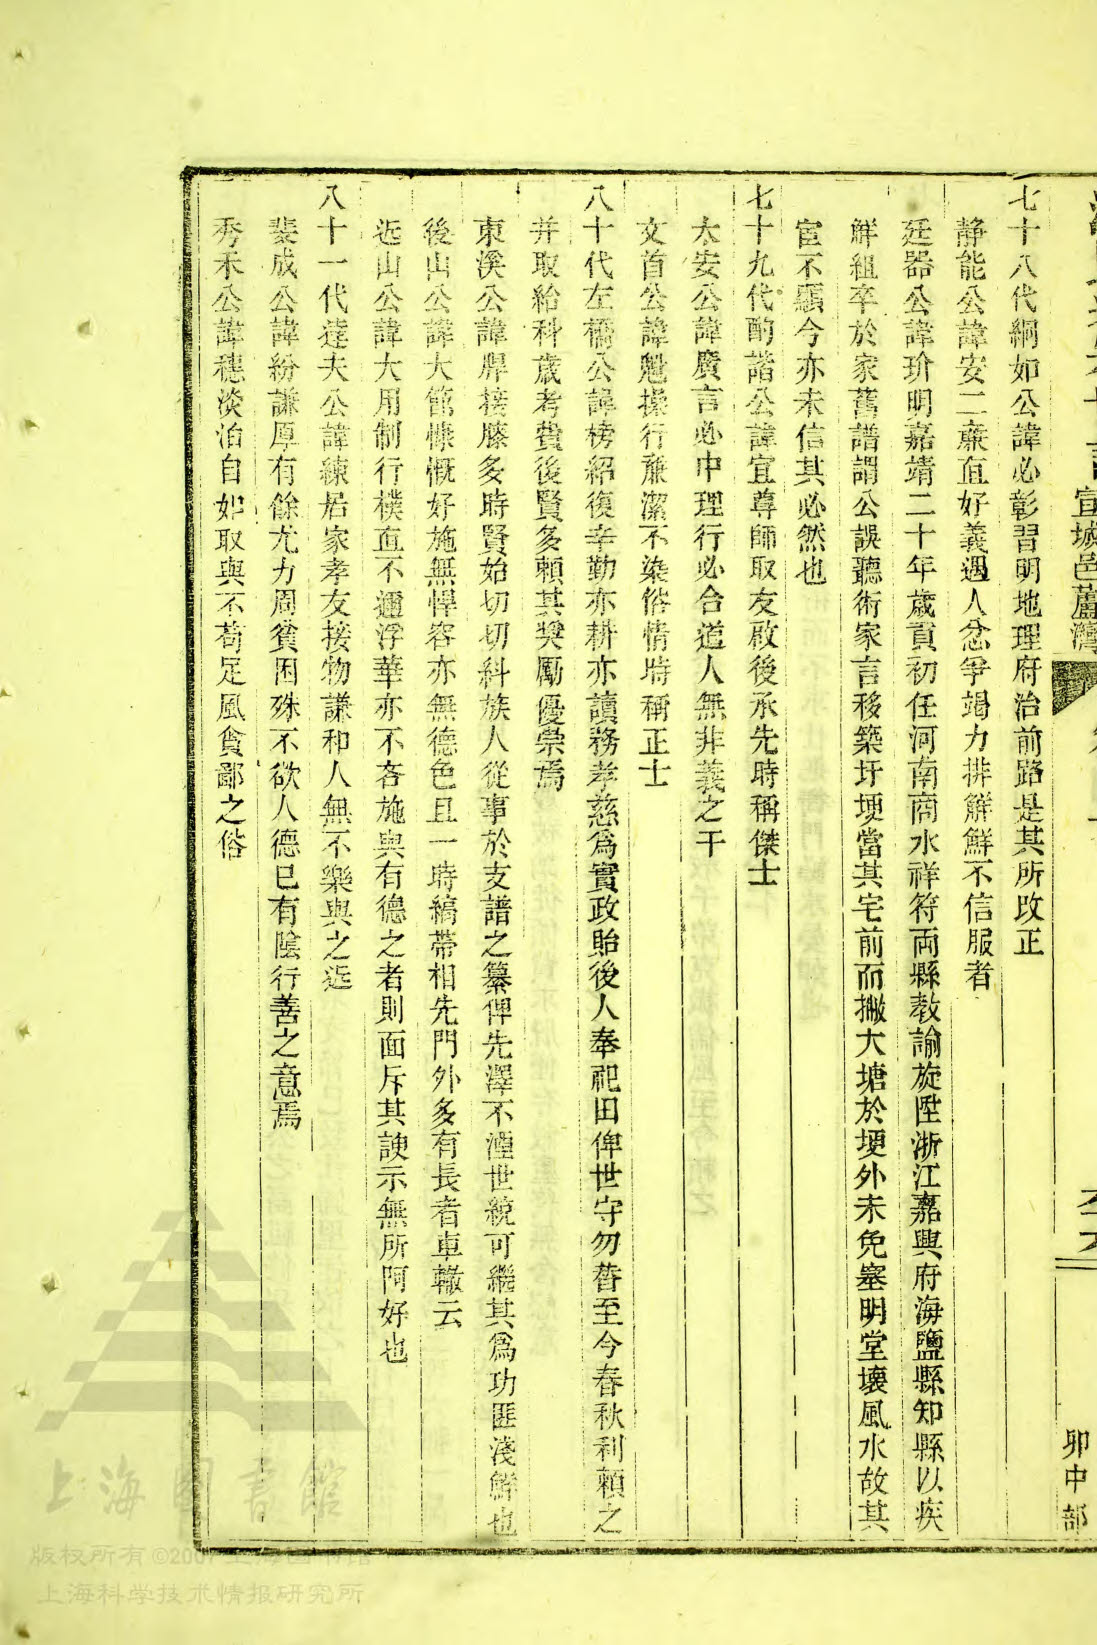 宣城邑蘆灣
卯中部
七十八代綱如公諱必彰習明地理府治前路是其所改正
靜能公諱安二亷直好義遇人忿爭竭力排解鮮不信服者
廷器公諱玠明嘉靖二十年歲貢初任河南商水祥符兩縣教諭旋陞浙江嘉興府海鹽縣知縣以疾
解組卒於家舊譜謂公誤聽術家言移築圩埂當其宅前而撇大塘於埂外未免塞明堂壞風水故其
宦不顯今亦未信其必然也
七十九代酌諧公諱宜尊師取友啟後承先時稱傑士
太安公諱廣言必中理行必合道人無非義之干
文首公諱魁操行亷潔不染俗情時稱正士
八十代左橋公諱榜紹復辛勤亦耕亦讀務孝慈爲實政貽後人奉祀田俾世守勿替至今春秋利賴之
并取給科歲考費後賢多賴其奬勵優崇焉
東溪公諱犀接膝多時賢始切切糾族人從事於支譜之纂俾先澤不湮世統可繼其爲功匪淺鮮也
後山公諱大管慷慨好施無悍容亦無德色且一時縞帶相先門外多有長者車轍云
近山公諱大用制行樸直不邇浮華亦不吝施與有德之者則面斥其諛示無所阿好也
八十一代達夫公諱練居家孝友接物謙和人無不樂與之近
斐成公諱紛謙厚有餘尤力周貧困殊不欲人德已有陰行善之意焉
秀禾公諱穗淡泊自如取與不苟足風貪鄙之俗
上海圖書館
版权所有©2007上海图书馆
上海科学技术情报研究所